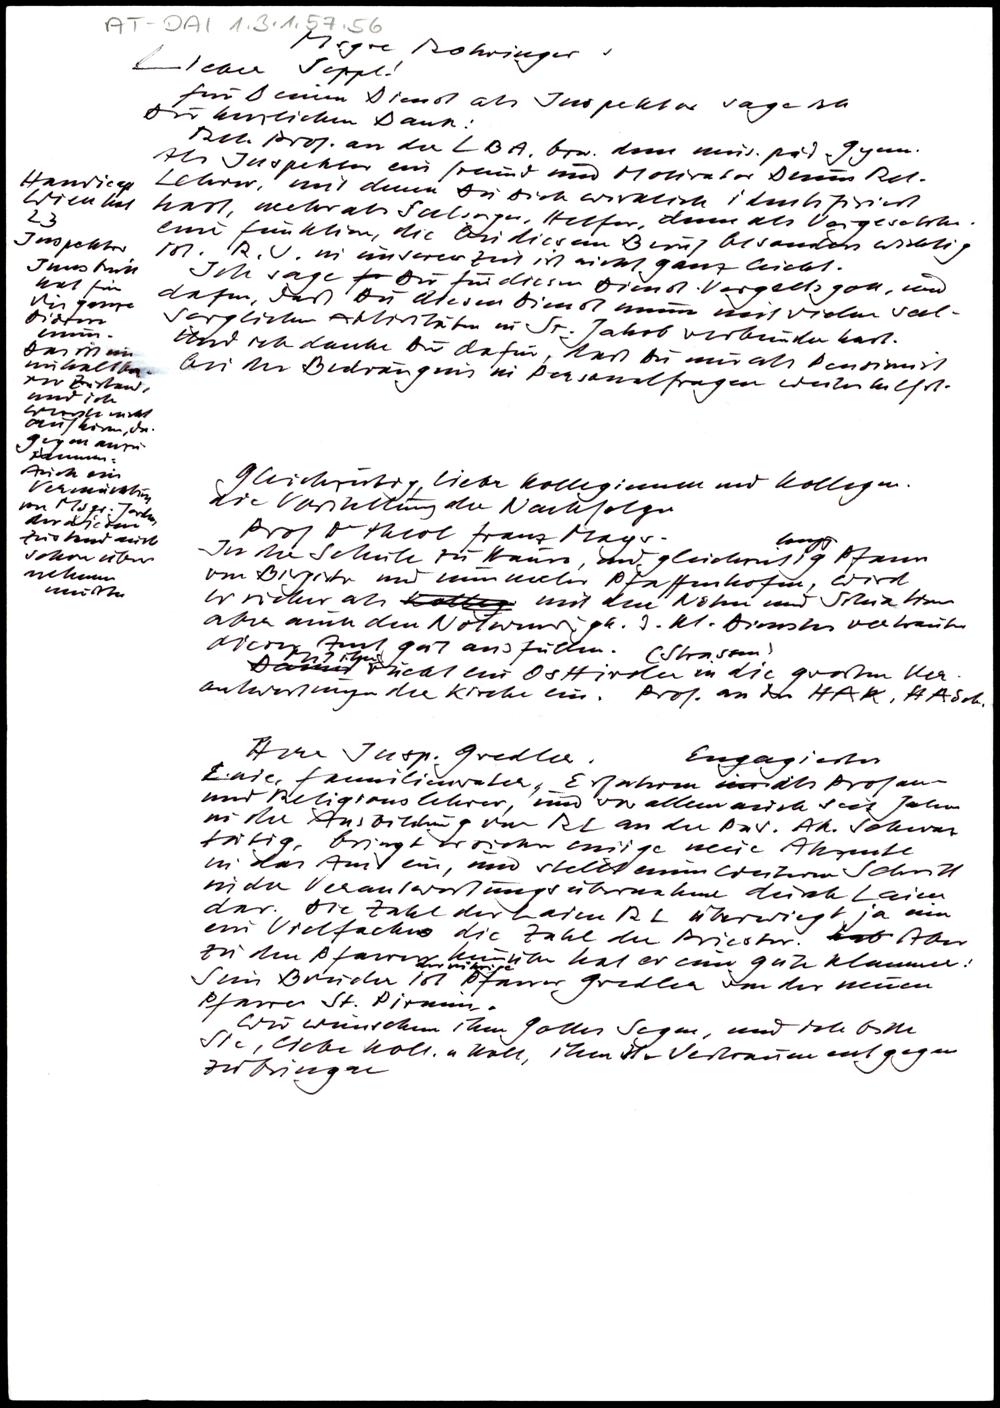 AT-DAI 1.3.1.57.56
Msgre Rohringer
Lieber Seppl!
für Deinen Dienst als Inspektor sage ich
Dir herzlichen Dank!
Rel. Prof. an der LBA, bzw. dem mus. päd. Gymn.
Als Inspektor ein Freund und Motivator Deiner Rel.
Lehrer, mit denen Du Dich wirklich identifiziert
hast, mehr als Seelsorger, Helfer, denn als Vorgesetzter.
eine Funktion, die bei diesem Beruf besonders wichtig
ist. R.U. in unserer Zeit ist nicht ganz leicht.
Ich sage Dir für diesen Dienst Vergeltsgott, und
dafür, dass Du diesen Dienst immer mit vielen seel-
sorglichen Aktivitäten in St. Jakob verbunden hast.
Und ich danke Dir dafür, dass Du mir als Pensionist
bei der Bedrängnis in Personalfragen weiterhilfst.
Handicap
Wien hat
23
Inspektor
Innsbruck
hat für
die ganze
Diözese
einen.
Das ist ein
unhaltba-
rer Zustand,
und ich
werde nicht
aufhören, da-
gegen anzu
rennen.
Auch ein
Vermächtnis
von Msgr.
der diesen
Zustand auch
schon über
nehmen
musste
Gleichzeitig, liebe Kolleginnen und Kollegen.
die Vorstellung der Nachfolger
Prof Dr theol Franz Mayr.
In der Schule zu Hause, und gleichzeitig lange Pfarrer
von Birgitz und nunmehr Pfaffenhofen, wird
er sicher als mit den Nöten und Situationen
aber auch den Notwendigk. d. kl. Dienstes vertrauter
dieses Amt gut ausfüllen. (Strassen!)
Mit ihm rückt ein Osttiroler in die grossen Ver-
antwortungen der Kirche ein. Prof. an der HAK, HASch.
Herr Insp. Gredler. Engagierter
Laie, Familienvater, Erfahren als Profan-
und Religionslehrer, und vor allem auch seit Jahren
in der Ausbildung von RL an der Päd. Ak. schwer
tätig, bringt er sicher einige neue Akzente
in das Amt ein, und stellt einen weiteren Schritt
in der Verantwortungsübernahme durch Laien
dar. Die Zahl der Laien RL überwiegt ja um
ein Vielfaches die Zahl der Priester. Aber
zu den Pfarrern hinüber hat er eine gute Klammer:
Sein Bruder ist der rührige Pfarrer Gredler von der neuen
Pfarre St. Pirmin.
Wir wünschen ihm Gottes Segen, und ich bitte
Sie, liebe Koll. u Koll, ihm Ihr Vertrauen entgegen
zubringen